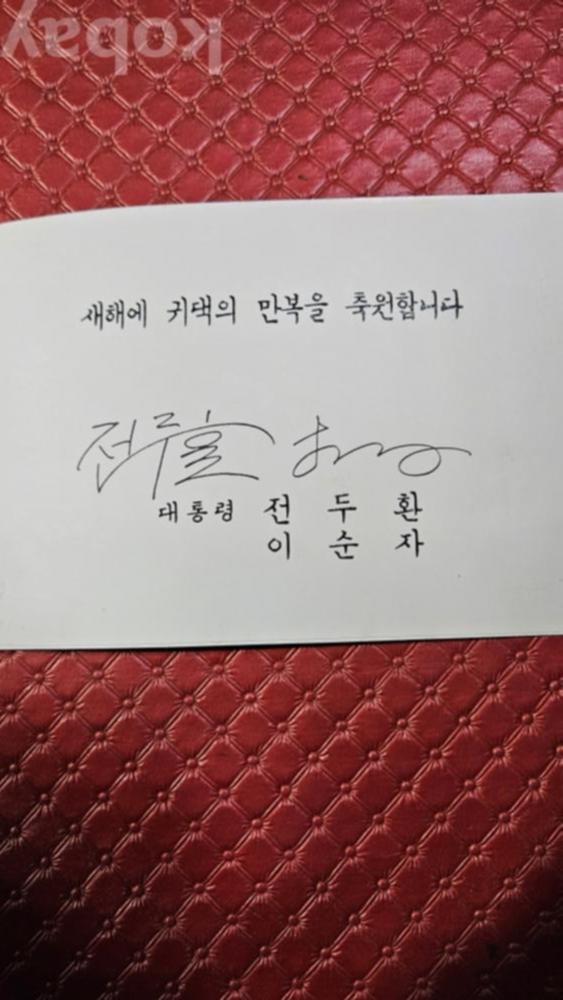 kobay
새해에 귀댁의 만복을 축원합니다
전두환
대통령 전 두 환
이 순 자